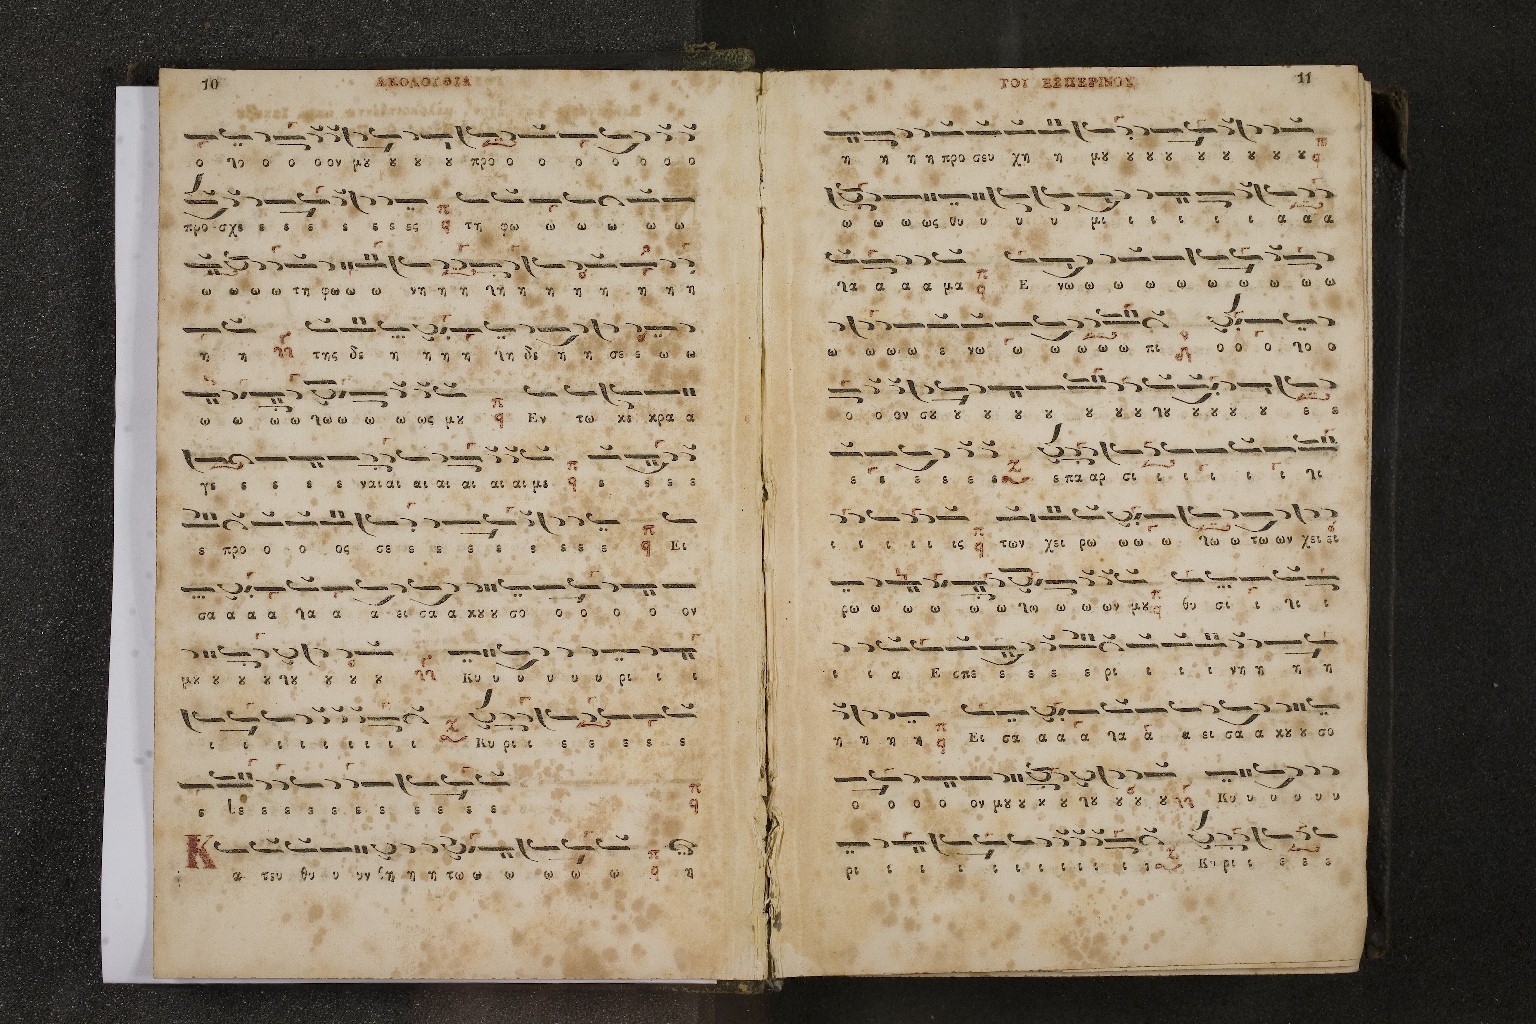 10 ΑΚΟΛΟΥΘΙΑ
ο λο ο ο ο ον μȣ ȣ ȣ ȣ προ ο ο ο ο ο ο ο
προ σχε ε ε ε ε ε ε ες τη φω ω ω ω ω ω
ω ω ω ω τη φω ω ω νη η η λη η η η η η η η
η η της δε η η η η λη δε η η σε ε ω ω
ω ω ω ω λω ω ω ω ως μȣ Εν τω κε κρα α
γε ε ε ε ε ναι αι αι αι αι αι αι με ε ε ε ε
ε προ ο ο ος σε ε ε ε ε ε ε ε ε Ει
σα α α α λα α α ει σα α κȣ ȣ σο ο ο ο ο ον
μȣ ȣ ȣ ȣ λȣ ȣ ȣ ȣ Κυ υ υ υ υ υ ρι ι ι
ι ι ι ι ι ι ι ι ι Κυ ρι ι ε ε ε ε ε
ε λε ε ε ε ε ε ε ε ε ε
Κ α τευ θυ υ υν θη η η τω ω ω ω ω ω η
ΤΟΥ ΕΣΠΕΡΙΝΟΥ 11
η η η η προ σευ χη η μȣ ȣ ȣ ȣ ȣ ȣ ȣ ȣ ȣ
ω ω ω ως θυ υ υ υ μι ι ι ι ι ι α α α
λα α α α μα Ε νω ω ω ω ω ω ω ω ω ω
ω ω ω ω ε νω ω ω ω ω ω πι ο ο ο λο ο
ο ο ον σȣ ȣ ȣ ȣ ȣ ȣ ȣ ȣ λȣ ȣ ȣ ȣ ȣ ε ε
ε ε ε ε ε ε ε πα αρ σι ι ι ι ι ι λι
ι ι ι ι ι ις των χει ρω ω ω ω λω ω τω ων χει ει
ρω ω ω ω ω ω λω ω ω ω ων μȣ θυ σι ι λι ι
ι ι α Ε σπε ε ε ε ε ρι ι ι ι ι νη η η η
η η η η Ει σα α α α λα α α ει σα α κȣ ȣ σο
ο ο ο ο ον μȣ ȣ ȣ ȣ λȣ ȣ ȣ ȣ Κυ υ υ υ υ
ρι ι ι ι ι ι ι ι ι ι ι Κυ ρι ι ε ε ε